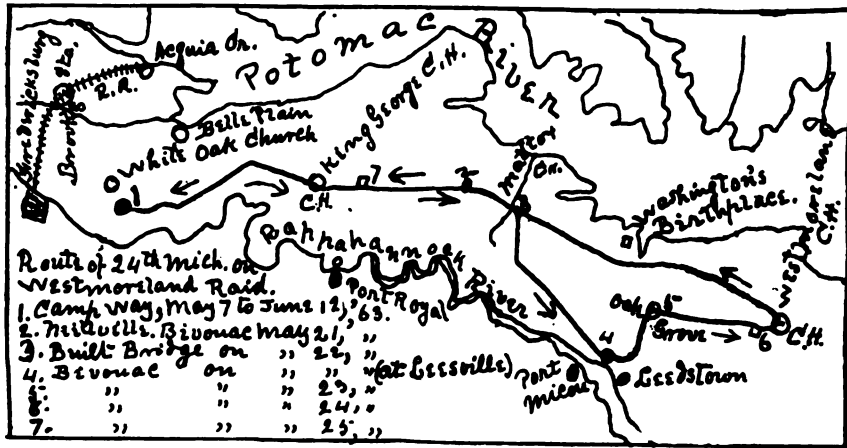 POTOMAC
RIVER
Acquia Cr.
R.R.
Fredericksburg
Brooks Sta.
Belle Plain
White Oak Church
King George C.H.
C.H.
1
7
Mattox
Cr.
3
Washington's
Birthplace.
Westmoreland
C.H.
C.H.
Rappahannock
River
Port Royal
Oak
Grove
5
6
4
Port
Micou
Leedstown
Route of 24th Mich. on
Westmoreland Raid.
1. Camp Way, May 7 to June 12, '63.
2. Millville. Bivouac May 21, "
3. Built Bridge on " 22, "
4. Bivouac on " " " (at Leesville)
" " " 23, "
" " " 24, "
7. " " " 25, "